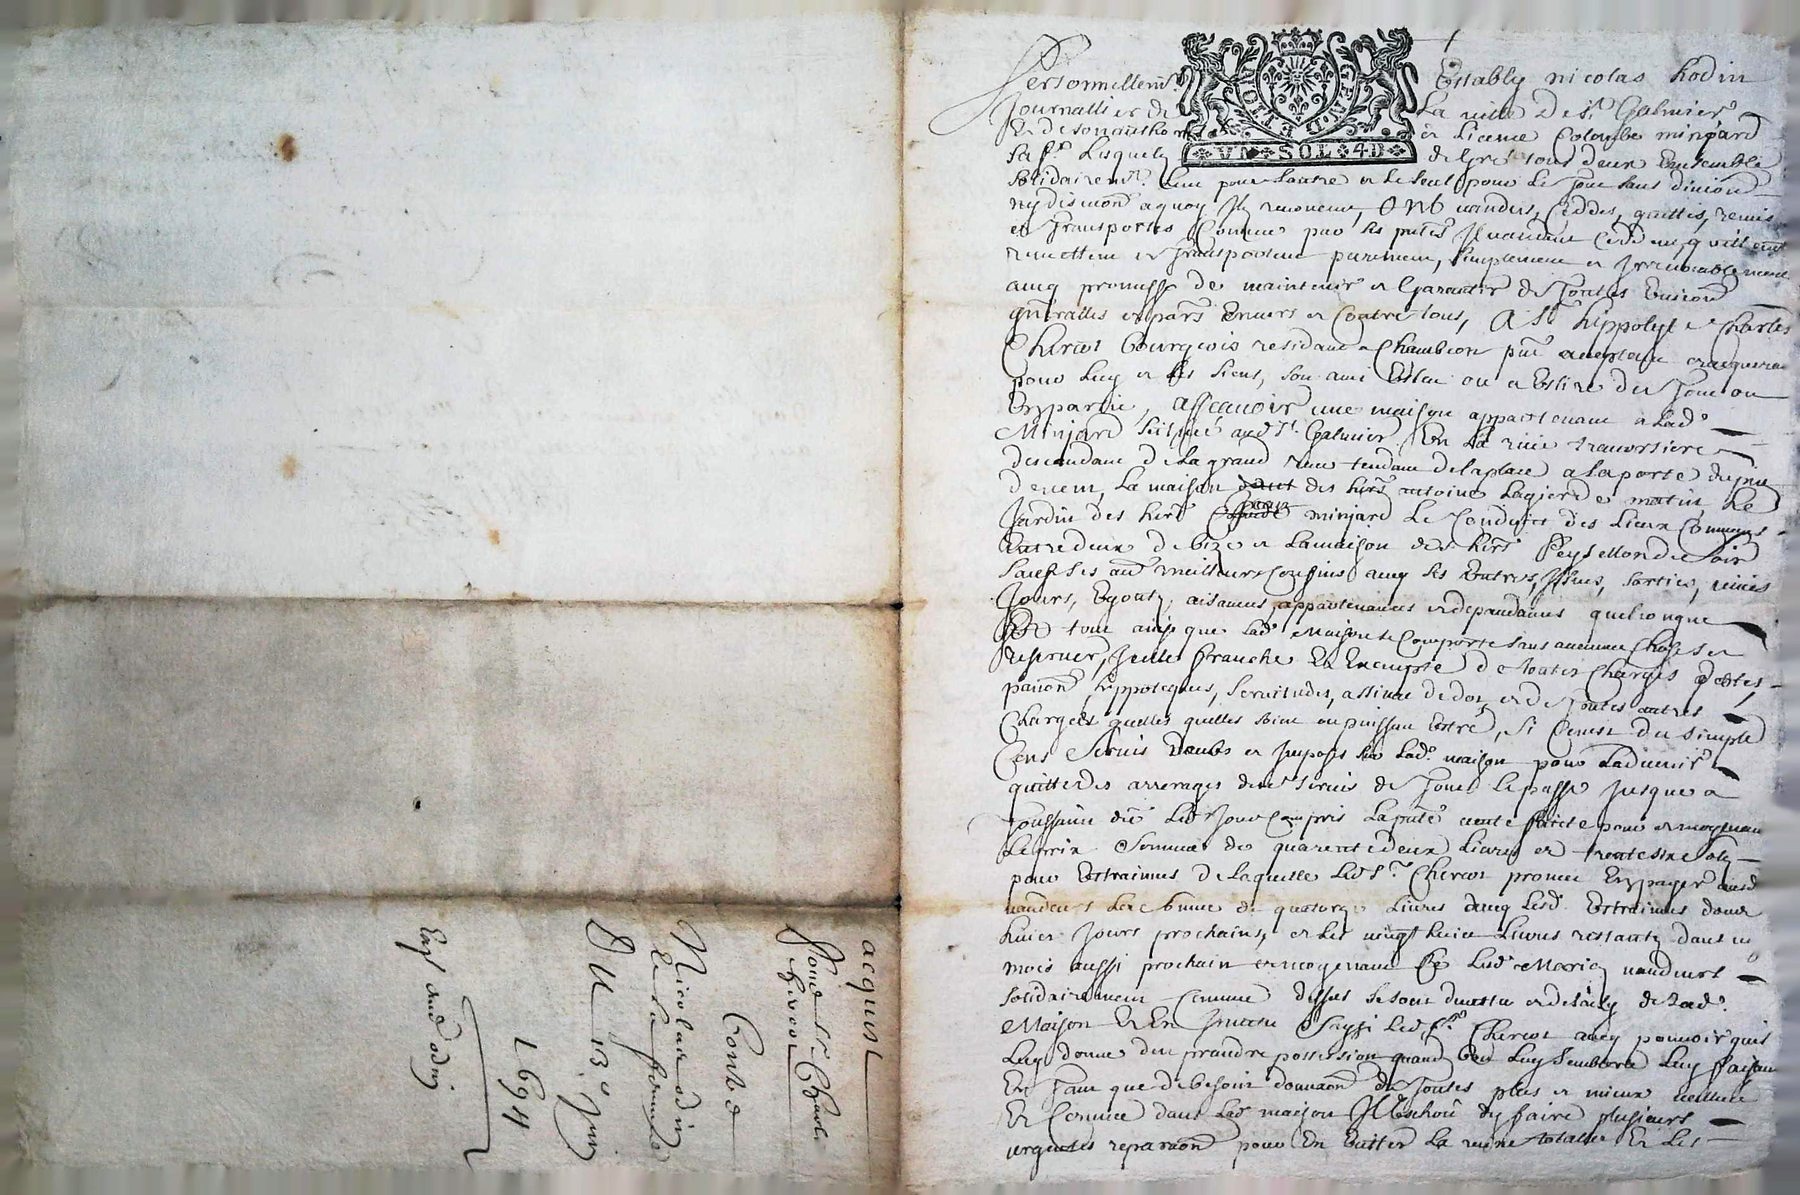 GEN.DE.LION
VN SOL 4D
Personnellem.t Estably nicolas hodin
Journallier de La ville De S.t Galmier
Et de son authorité et licence Colombe minjard
sa f.e Lesquels de gré tous deux Ensemble
solidairem.t Lun pour Lautre et Le seul pour Le Tout sans division
ny discution a quoy Ils renoncent, Ont vandus, Ceddés, quittés, remis
et Transportés Comme par Les pntes Ils vandent Ceddent, quittent
remettent et Transportent purement, simplement et Irrevocablement
avec promesse de maintenir et Garantir de Toutes Evictions
gnralles et pars Envers et Contre tous, A S.r hippolyte Charles
Chircot Bourgeois residant a Chambeon pnt acceptant et acquerant
pour Luy et Les siens, son ami Esleu ou a Eslire du Tout ou
En partie, assavoir une maison appartenant a Lad.
Minjard scituée aud St. Galmier En La rue traversiere
descendant de La grand rue tendant de la place a La porte
devent, La maison des hers antoine Lagier de matin, Le
Jardin des hers minjard Le Conduit des Lieux Communs
Entredeux de bize et La maison des hers Peysellon de soir
sauf ses aud meilleurs Confins avec ses Entrées, Issues, sorties, vues
Jours, Egouts, aisances, appartenances et depandances quelconque
Et tout ainsi que Lad. Maison se Comporte sans aucune Chose se
reserver, Icelle franche Et Exempte de toutes Charges debtes,
pantions hippoteques, servitudes, assinat de dot, et de Toutes autres
Charges quelles quelles soint ou puissent Estre, si Ce nest du simple
Cens servis Deubs et Imposés sur Lad. maison pour Ladvenir
quitte des arrerages desd servis de Tout Le passé Jusque a
Toussaint der Led Jour Compris La pnte vente faicte pour et moyenant
Le prix somme de quarente deux Livres et trente six sols
pour Estraines De Laquelle Led s.r Chircot promet En payer ausd
vandeurs La somme de quatorze Livres avec Lesd. Estraines dans
huict Jours prochains, et Les vingt huict Livres restants dans un
mois aussi prochain et moyenant Ce Lesd Mariés vandeurs
solidairement Comme dessus se sont demetu et desaisy de Lad.
Maison Et En Ont Investu Saysi Led S.r Chircot avec pouvoir quils
Luy donnent den prandre possession quand bon Luy semblera Luy faisant
En Tant que de besoin donnaon De Toutes plus et mieux vallue
Et Comme dans Lad maison Il Eschoit dy faire plusieurs
urgentes reparaons pour En Eviter La ruine totalle Et Les
acquist
Pour s.r Charle
chircot
Contre
Nicolas odin
et sa femme
Du 13.e Juin
1694